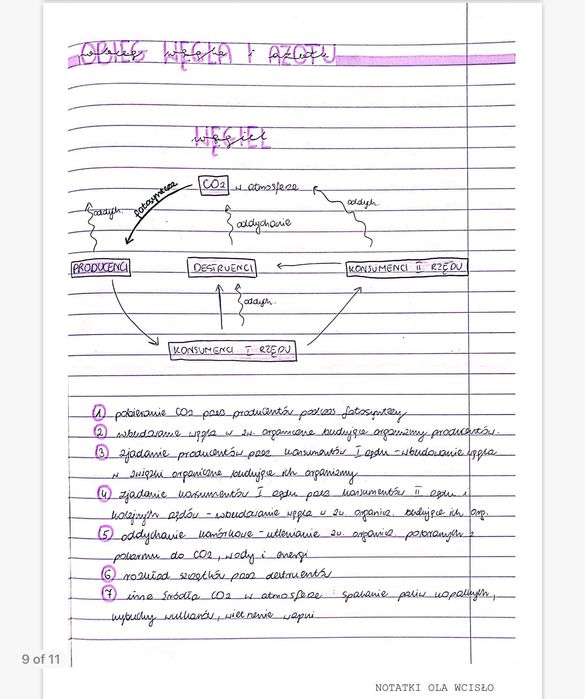 OBIEG WĘGLA I AZOTU
obieg węgla i azotu
WĘGIEL
węgiel
CO2 w atmosferze
fotosynteza
oddych.
oddychanie
oddych.
PRODUCENCI
DESTRUENCI
KONSUMENCI II RZĘDU
oddych.
KONSUMENCI I RZĘDU
1 pobieranie CO2 przez producentów podczas fotosyntezy
2 wbudowanie węgla w zw. organiczne budujące organizmy producentów.
3 zjadanie producentów przez konsumentów I rzędu - wbudowanie węgla
w związki organiczne budujące ich organizmy
4 zjadanie konsumentów I rzędu przez konsumentów II rzędu i
kolejnych rzędów - wbudowanie węgla w zw. organicz. budujące ich org.
5 oddychanie komórkowe - utlenianie zw. organicz. pobranych z
pokarmu do CO2, wody i energi
6 rozkład szczątków przez destruentów
7 inne źródła CO2 w atmosferze: spalanie paliw kopalnych,
wybuchy wulkanów, wietrzenie wapni
9 of 11
NOTATKI OLA WCISŁO